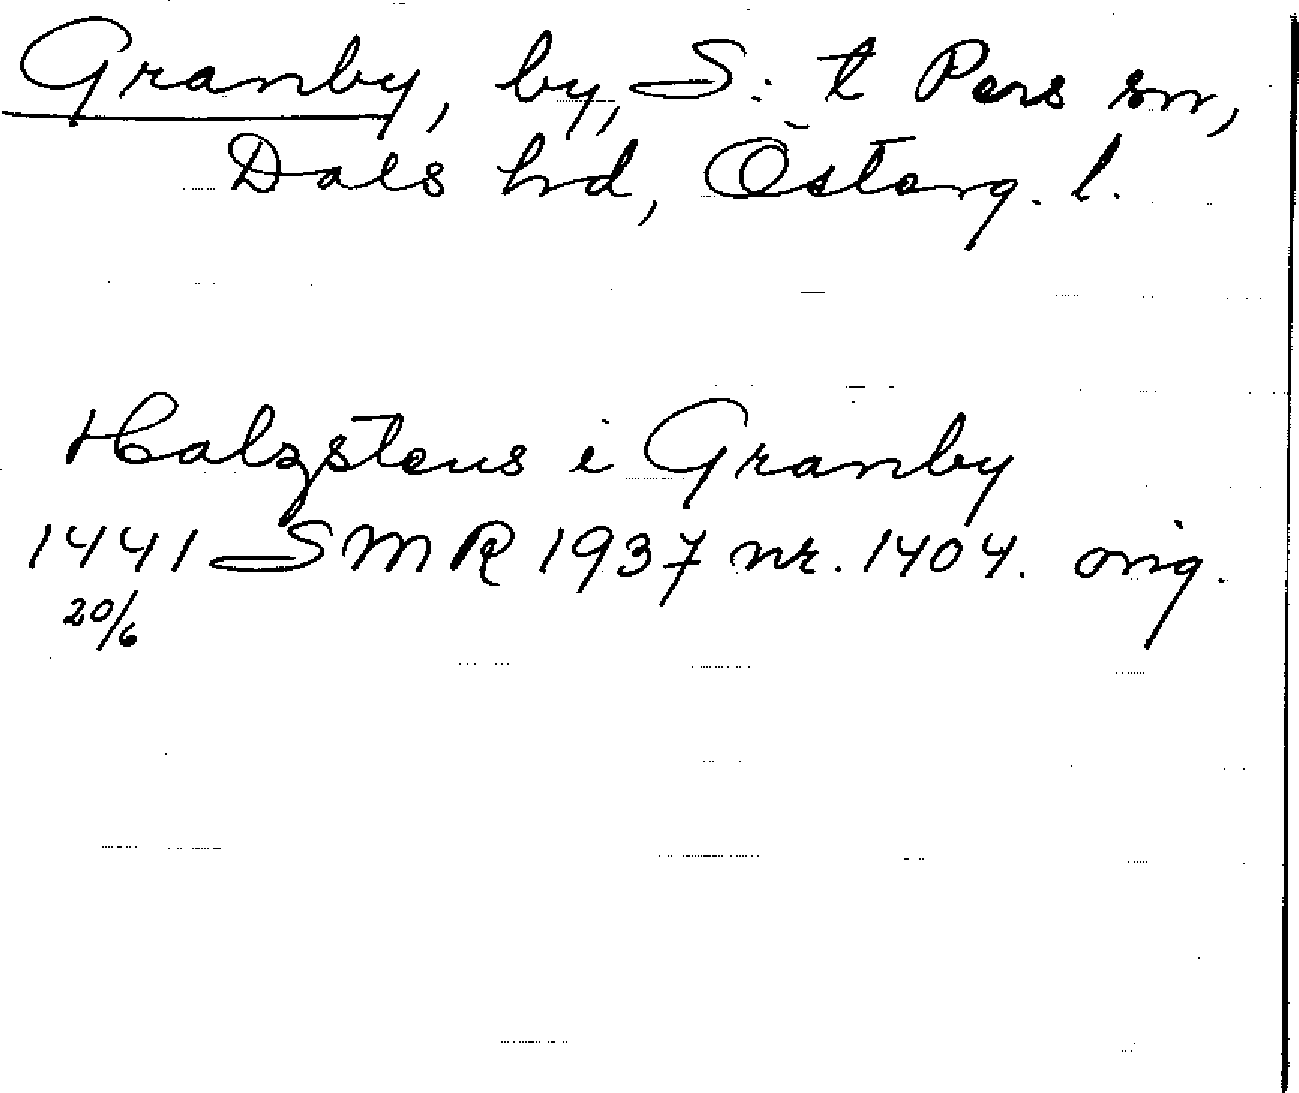 Granby, by, S:t Pers sn,
Dals hd, Österg. l.
Halzstens i Granby
1441 SMR 1937 nr. 1404. orig.
20/6